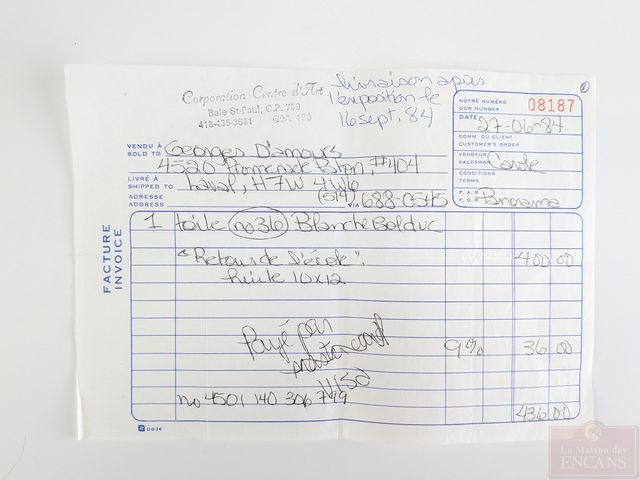 livraison après
l'exposition le
16 sept. 84
Corporation Centre d'Art
Baie St-Paul, C.P. 789
418-435-3681 G0A 1B0
NOTRE NUMÉRO
OUR NUMBER 08187
DATE 27-06-84
COMM. DU CLIENT
CUSTOMER'S ORDER
VENDEUR
SALESMAN Carole
CONDITIONS
TERMS
F. A. B.
F. O. B. Panorama
VENDU À
SOLD TO Georges D'amours
4520 Promenade Paton, #404
LIVRÉ À
SHIPPED TO Laval, H7W 4W6
ADRESSE
ADDRESS VIA (514) 688-0545
FACTURE
INVOICE
1 toile no 36 Blanche Bolduc
"Retour de l'école". 400 00
huile 10x12
Payé par
9% 36 00
Visa
no 4501 140 306 749
436 00
D83€
La Maison des
ENCANS